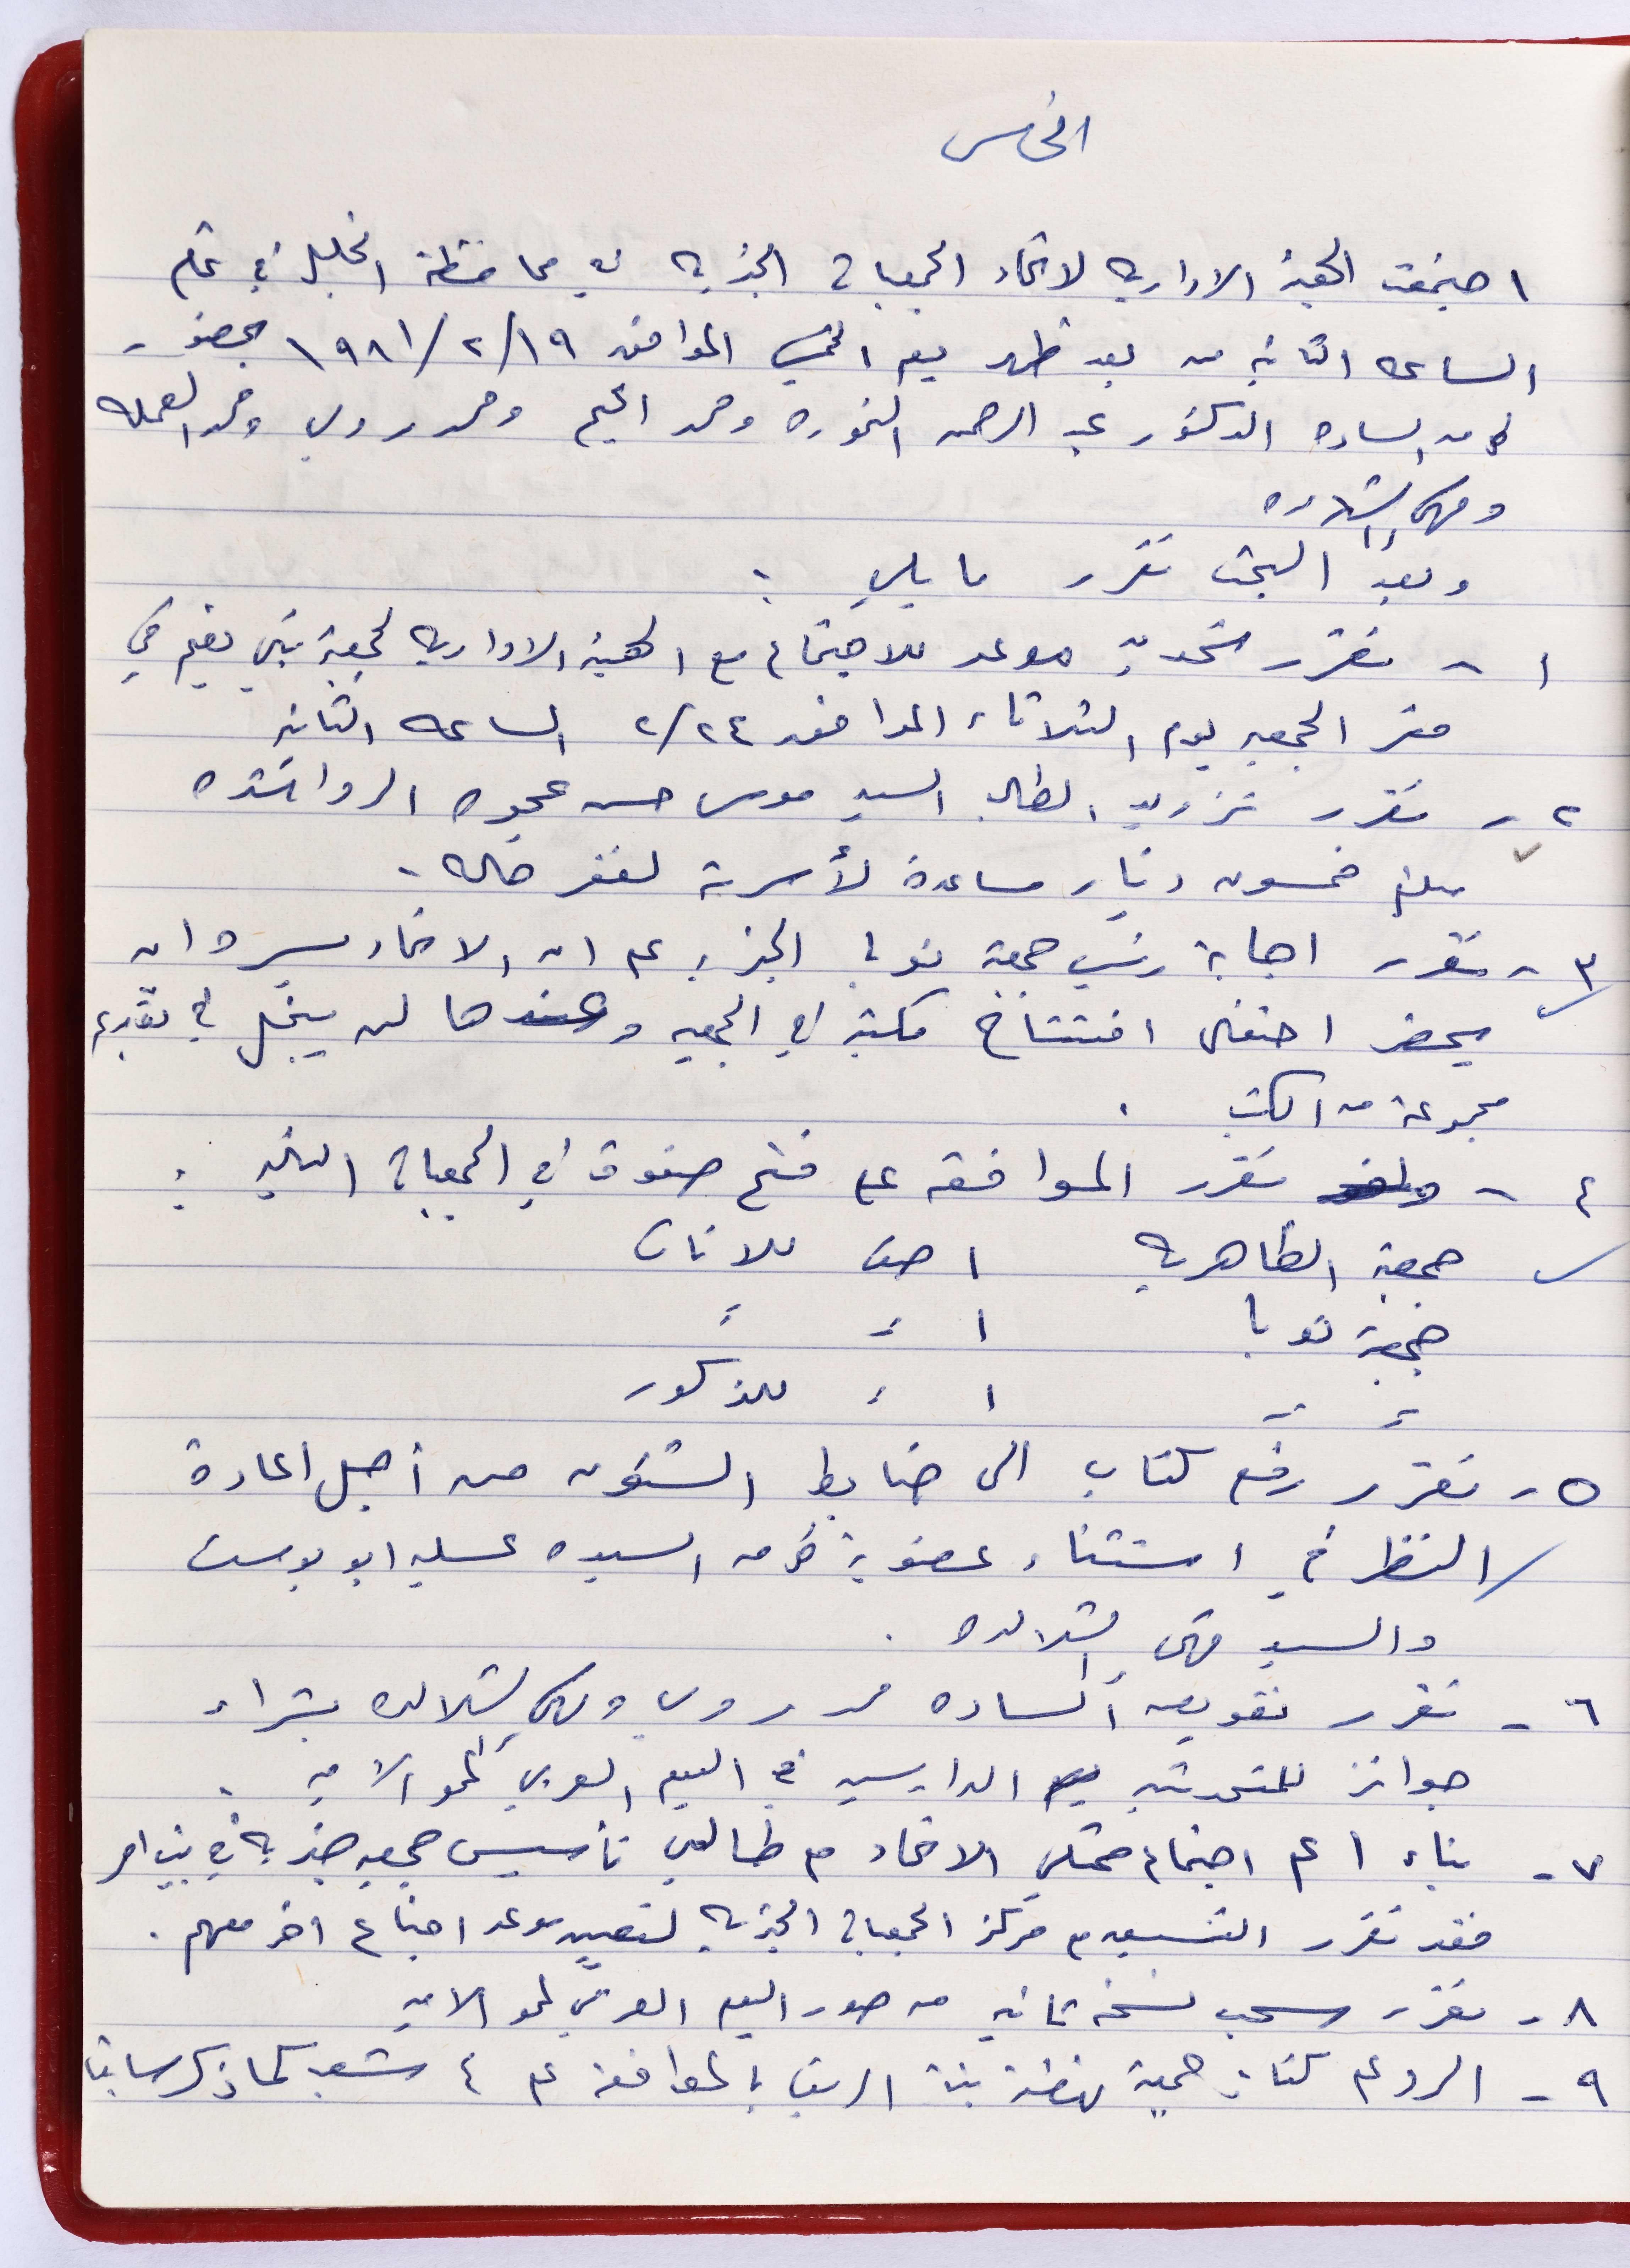 الخامس
اجتمعت الهيئة الادارية لاتحاد الجمعيات الخيرية في محافظة الخليل في تمام
الساعه الثانيه من بعد ظهر يوم الخميس الموافق ١٩٨١/٢/١٩ بحضور
كل من الساده الدكتور عبد الرحمن النمورة ومحمد المحيم ومحمد رومي ومحمد العمله
ومهدي الشلالده
وبعد البحث تقرر ما يلي :
١ - تقرر تحديد موعد للاجتماع مع الهيئة الادارية لجمعية بني نعيم في
مقر الجمعيه يوم الثلاثاء الموافق ٢/٢٤ الساعه الثانيه
٢ - تقرر تزويد الطالب السيد موسى حسن عجوه الرواشده
مبلغ خمسون دينار مساعدة لأسرته لفقر حاله .
٣ - تقرر اجابة رئيس جمعية نوبا الخيريه على ان الاتحاد يسره ان
يحضر احتفال افتتاح مكتبة في الجمعيه وعندها لن يبخل في تقديم
مجموعة من الكتب .
٤ - تقرر الموافقه على فتح صفوف في الجمعيات التاليه :
جمعية الظاهرية ١ صف للاناث
جمعية نوبا ١ = =
= = ١ = للذكور
٥ - تقرر رفع كتاب الى ضابط الشئون من أجل اعادة
النظر في استثناء عضوية كل من السيده عسليه ابو يوسف
والسيد مهدي الشلالده .
٦ - تقرر تفويض الساده محمد رومي ومهدي الشلالده بشراء
جوائز للمتحدثين الدارسين في اليوم العربي لمحو الاميه .
٧ - بناء ا على اجتماع ممثلي الاتحاد مع طالبي تأسيس جمعيه خيريه في بيت امر
فقد تقرر التنسيق مع مركز الجمعيات الخيرية لتعيين موعد اجتماع اخر معهم .
٨ - تقرر سحب نسخه ثانيه من صور اليوم العربي لمحو الاميه
٩ - الرد على كتاب جمعية نهضة بنت الريف بالموافقة على ٤ شعب كما ذكر سابقا